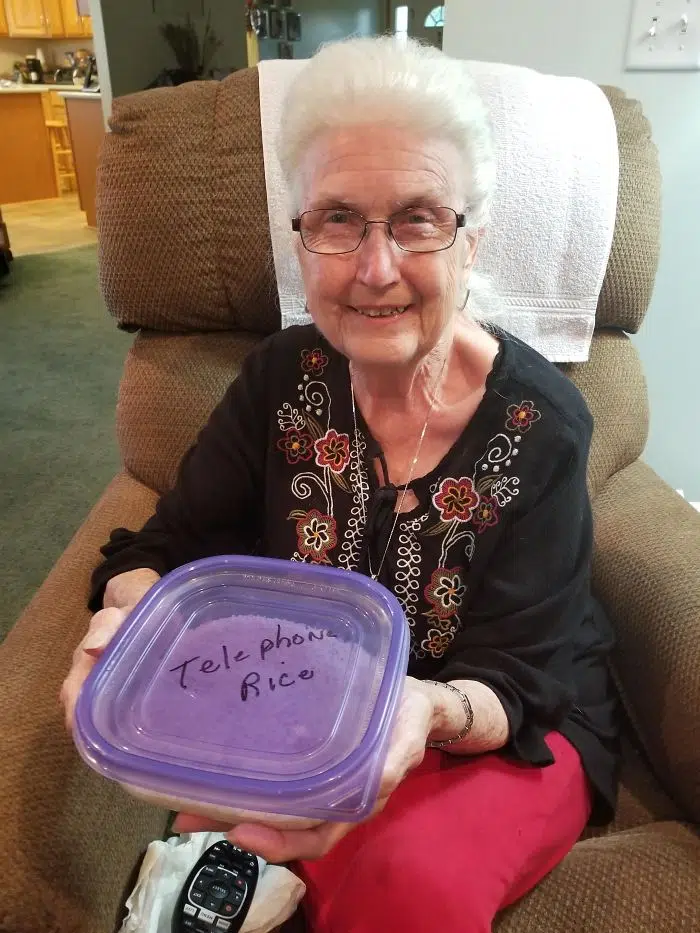 Telephone
Rice